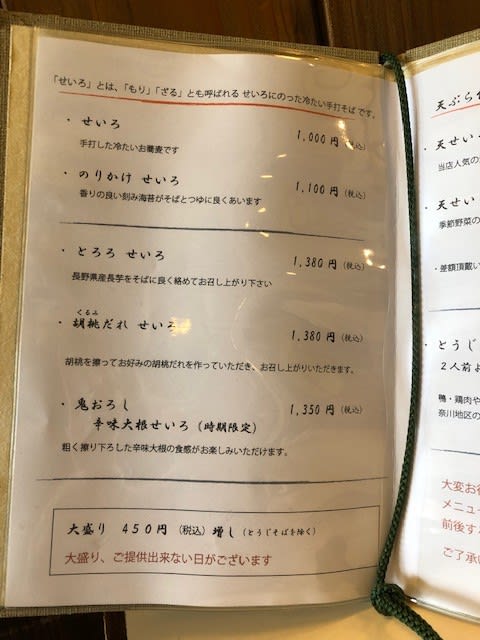 「せいろ」とは、「もり」「ざる」とも呼ばれる せいろにのった冷たい手打そば です。
・ せいろ 1,000円(税込)
手打した冷たいお蕎麦です
・ のりかけ せいろ 1,100円(税込)
香りの良い刻み海苔がそばとつゆに良くあいます
・ とろろ せいろ 1,380円(税込)
長野県産長芋をそばに良く絡めてお召し上がり下さい
くるみ
・ 胡桃だれ せいろ 1,380円(税込)
胡桃を擂ってお好みの胡桃だれを作っていただき、お召し上がりいただきます。
・ 鬼おろし
辛味大根せいろ(時期限定) 1,350円(税込)
粗く擦り下ろした辛味大根の食感がお楽しみいただけます。
大盛り 450円(税込)増し(とうじそばを除く)
大盛り、ご提供出来ない日がございます
天ぷら
・ 天せい
当店人気の
・ 天せい
季節野菜の
・差額頂戴い
・ とうじ
2人前よ
鴨・鶏肉や
奈川地区の
大変お
メニュ
前後す
ご了承